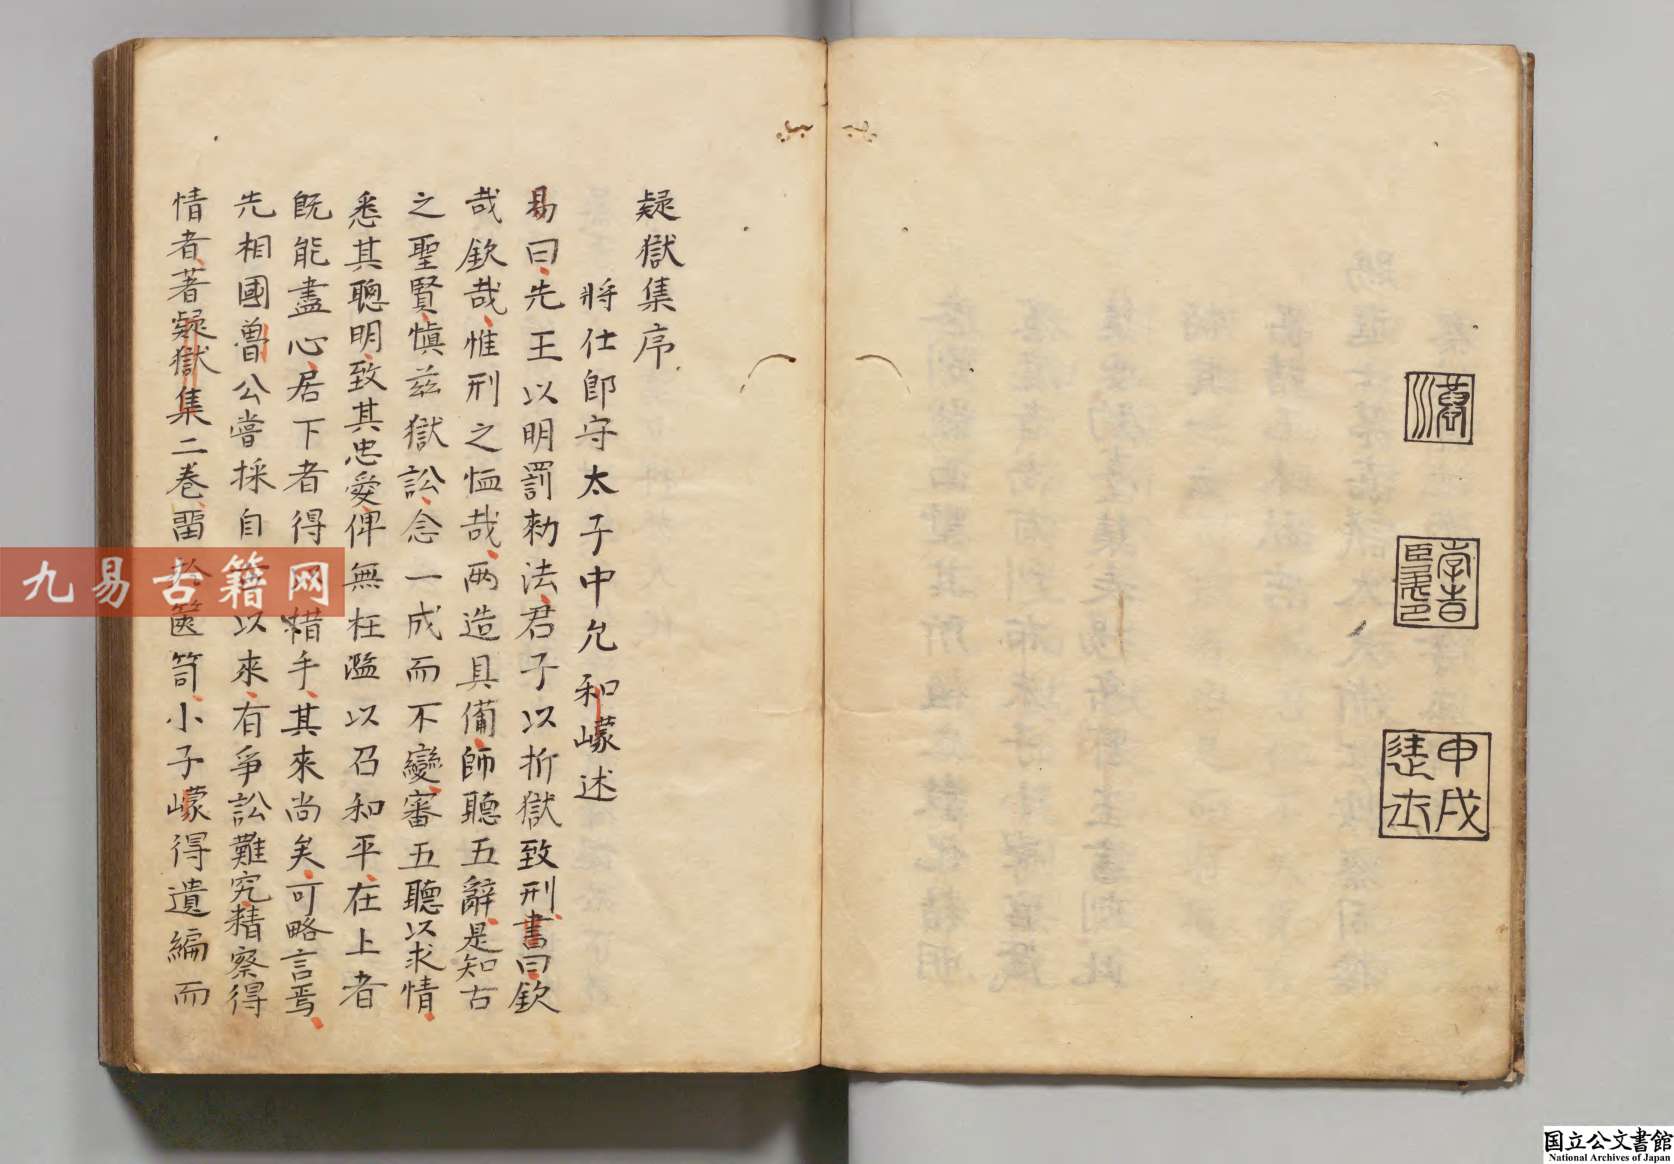 甲戌
進士
疑獄集序
將仕郎守太子中允和㠓述
易曰先王以明罰勅法君子以折獄致刑書曰欽
哉欽哉惟刑之恤哉兩造具備師聽五辭是知古
之聖賢愼茲獄訟念一成而不變審五聽以求情
悉其聰明致其忠愛俾無枉濫以召和平在上者
旣能盡心居下者得措手其來尚矣可略言焉
先相國魯公嘗採自以來有爭訟難究精察得
情者著疑獄集二卷畱篋笥小子㠓得遺編而
九易古籍网
国立公文書館
National Archives of Japan